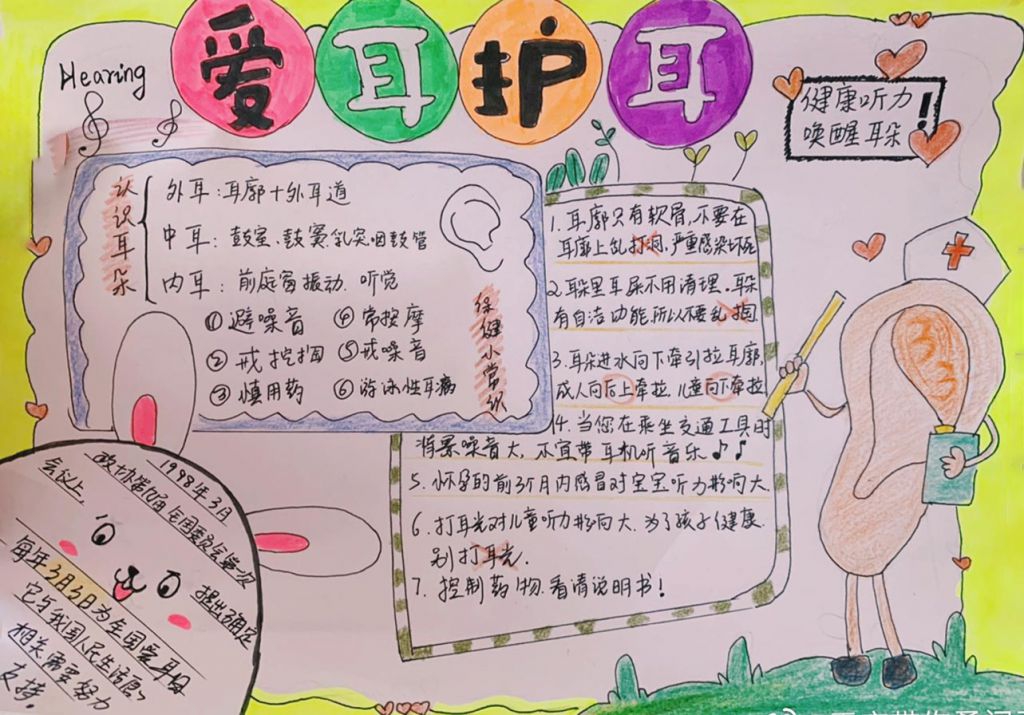 Hearing
爱耳护耳
健康听力
唤醒耳朵!
认识耳朵
外耳:耳廓+外耳道
中耳:鼓室、鼓窦、乳突咽鼓管
内耳:前庭窗振动、听觉
保健小常识
① 避噪音 ④ 常按摩
② 戒挖掏 ⑤ 戒噪音
③ 慎用药 ⑥ 游泳性耳病
1. 耳廓只有软骨,不要在
耳廓上乱打洞,严重感染坏死
2. 耳朵里耳屎不用清理,耳朵
有自洁功能,所以不要乱掏
3. 耳朵进水向下牵引拉耳廓,
成人向后上牵拉,儿童向下牵拉
4. 当您在乘坐交通工具时
背景噪音大,不宜带耳机听音乐
5. 怀孕的前3个月内感冒对宝宝听力影响大
6. 打耳光对儿童听力影响大,为了孩子健康,
别打耳光.
7. 控制药物,看清说明书!
1998年3月
政协第九届全国委员会第一次
会议上,
提出确定
每年3月3日为全国爱耳日
它与我国人民生活息息
相关需要努力
支持。